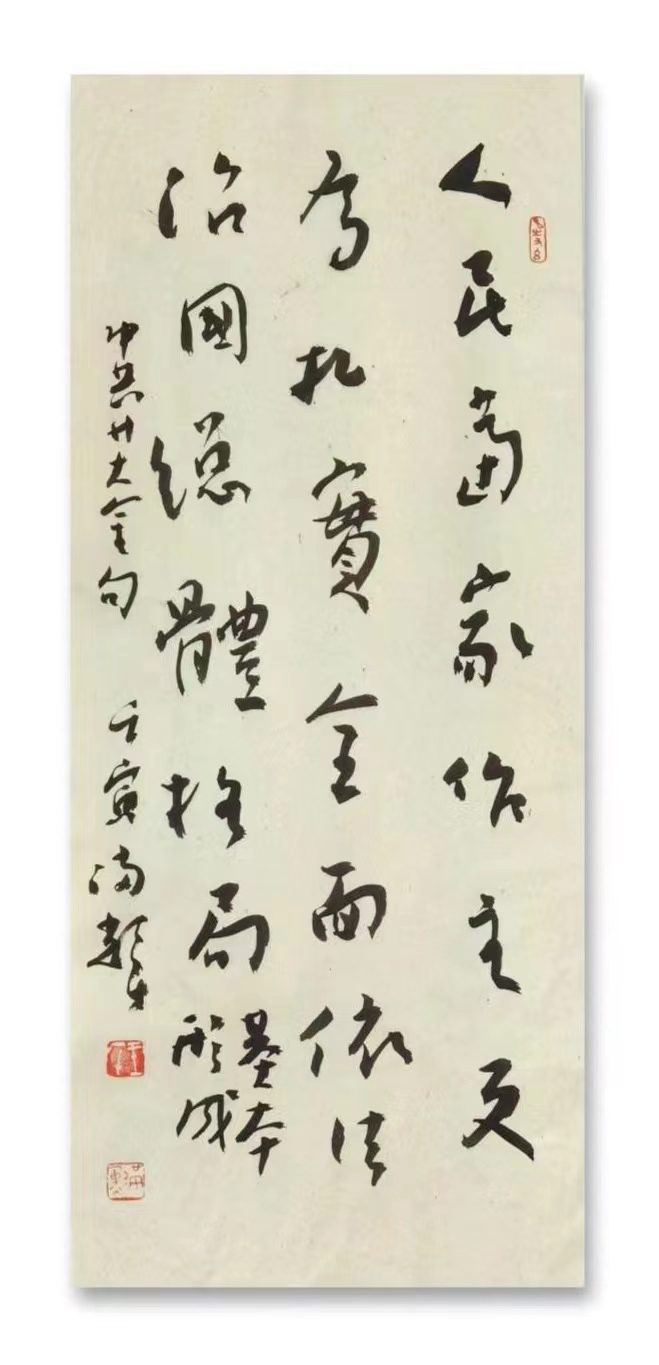 人民當家作主更
為扎實全面依法
治國總體格局基本形成
中共廿大金句 壬寅